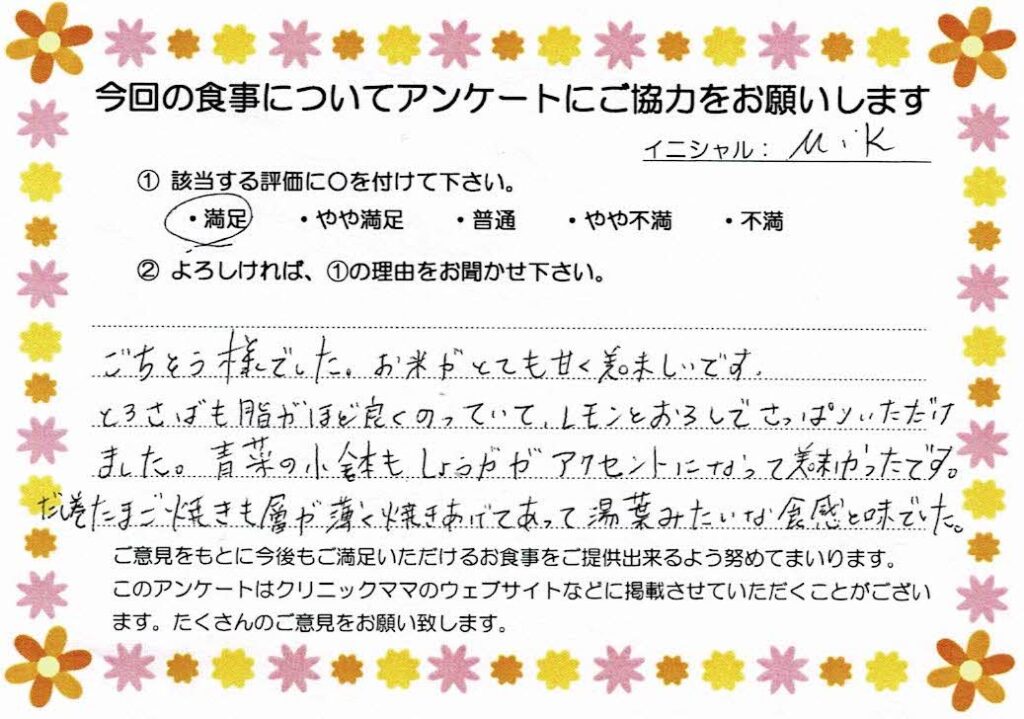 今回の食事についてアンケートにご協力をお願いします
イニシャル： M.K
① 該当する評価に〇を付けて下さい。
・満足 ・やや満足 ・普通 ・やや不満 ・不満
② よろしければ、①の理由をお聞かせ下さい。
ごちそう様でした。お米がとても甘く美味しいです。
とろさばも脂がほど良くのっていて、レモンとおろしでさっぱりいただけ
ました。青菜の小鉢もしょうががアクセントになって美味かったです。
だし巻たまご焼きも層が薄く焼きあげてあって湯葉みたいな食感と味でした。
ご意見をもとに今後もご満足いただけるお食事をご提供出来るよう努めてまいります。
このアンケートはクリニックママのウェブサイトなどに掲載させていただくことがござい
ます。たくさんのご意見をお願い致します。